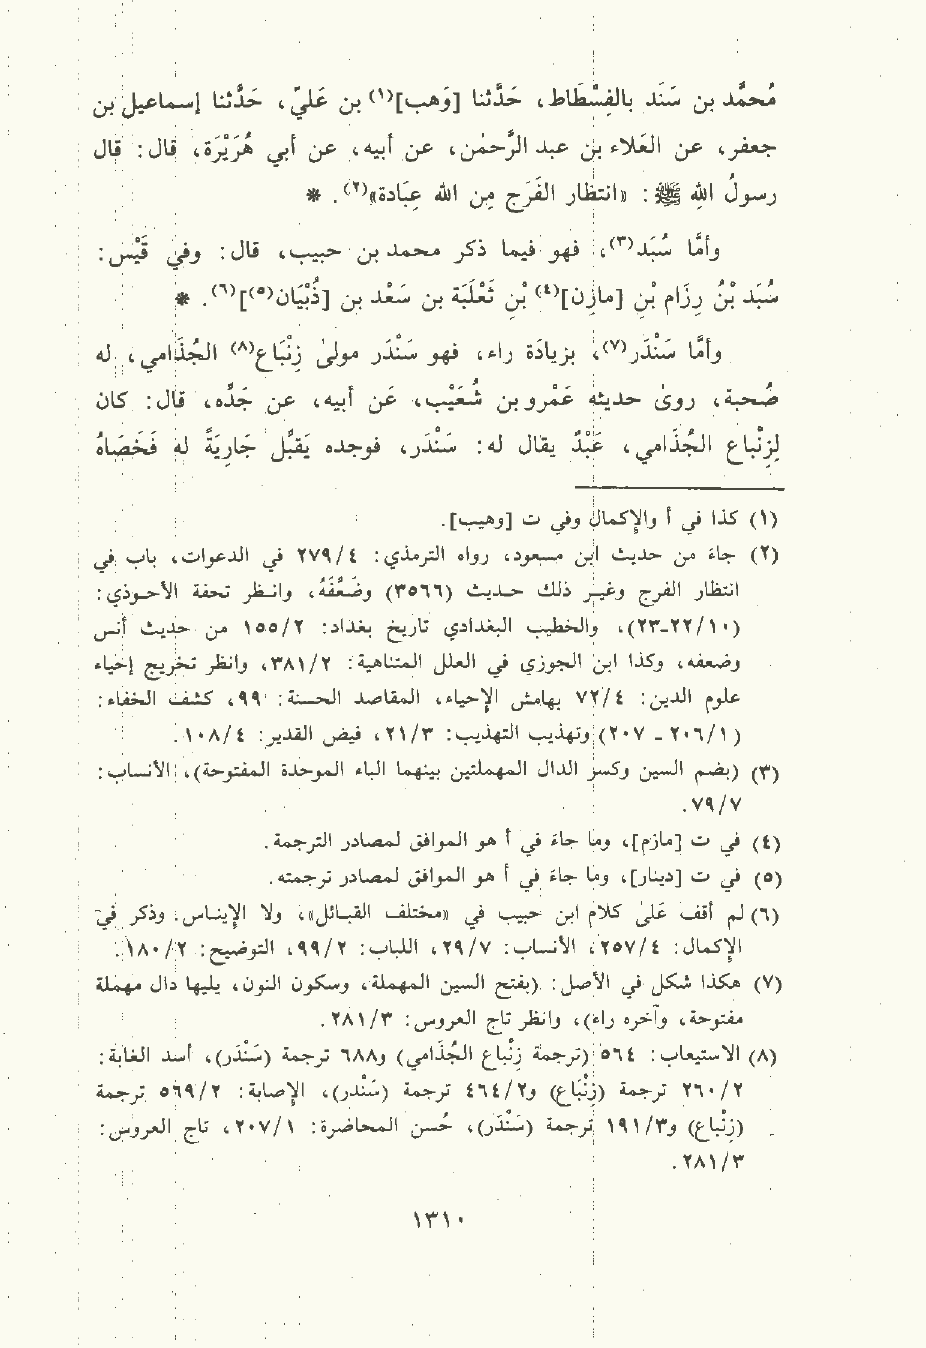 مُحمَّد بن سَنَد بالفِسْطَاط، حَدَّثنا [وَهب](١) بن عَليّ، حَدَّثنا إسماعيل بن
جعفر، عن العَلاء بن عبد الرَّحمٰن، عن أبيه، عن أبي هُرَيْرَة، قال: قال
رسولُ اللهِ ﷺ: «انتظار الفَرَج مِن الله عِبَادة»(٢). *
وأمَّا سُبَد(٣)، فهو فيما ذكر محمد بن حبيب، قال: وفي قَيْس:
سُبَد بْنُ رِزَام بْنِ [مازِن](٤) بْنِ ثَعْلَبَة بن سَعْد بن [ذُبْيَان(٥)](٦). *
وأمَّا سَنْدَر(٧)، بزيادَة راء، فهو سَنْدَر مولىٰ زِنْبَاع(٨) الجُذَامي، له
صُحبة، روىٰ حديثه عَمْرو بن شُعَيْب، عَن أبيه، عن جَدِّه، قال: كان
لِزِنْباع الجُذَامي، عَبْدٌ يقال له: سَنْدَر، فوجده يَقبِّل جَارِيَةً له فَخَصَاهُ
(١) كذا في أ والإكمال وفي ت [وهيب].
(٢) جاءَ من حديث ابن مسعود، ورواه الترمذي: ٢٧٩/٤ في الدعوات، باب في
انتظار الفرج وغير ذلك حديث (٣٥٦٦) وضَعَّفَهُ، وانظر تحفة الأحوذي:
(٢٢/١٠-٢٣)، والخطيب البغدادي تاريخ بغداد: ١٥٥/٢ من حديث أنس
وضعفه، وكذا ابن الجوزي في العلل المتناهية: ٣٨١/٢، وانظر تخريج إحياء
علوم الدين: ٧٢/٤ بهامش الإحياء، المقاصد الحسنة: ٩٩، كشف الخفاء:
(٢٠٦/١ - ٢٠٧) وتهذيب التهذيب: ٢١/٣، فيض القدير: ١٠٨/٤.
(٣) (بضم السين وكسر الدال المهملتين بينهما الباء الموحدة المفتوحة)، الأنساب:
٧٩/٧.
(٤) في ت [مازم]، وما جاءَ في أ هو الموافق لمصادر الترجمة.
(٥) في ت [دينار]، وما جاءَ في أ هو الموافق لمصادر ترجمته.
(٦) لم أقف علىٰ كلام ابن حبيب في «مختلف القبائل»، ولا الإيناس. وذكر في
الإكمال: ٢٥٧/٤، الأنساب: ٢٩/٧، اللباب: ٩٩/٢، التوضيح: ١٨٠/٢.
(٧) هكذا شكل في الأصل: (بفتح السين المهملة، وسكون النون، يليها دال مهملة
مفتوحة، وآخره راء)، وانظر تاج العروس: ٢٨١/٣.
(٨) الاستيعاب: ٥٦٤ (ترجمة زِنْباع الجُذَامي) و٦٨٨ ترجمة (سَنْدَر)، أسد الغابة:
٢٦٠/٢ ترجمة (زِنْبَاع) و٤٦٤/٢ ترجمة (سَنْدَر)، الإصابة: ٥٦٩/٢ ترجمة
(زِنْباع) و١٩١/٣ ترجمة (سَنْدَر)، حُسن المحاضرة: ٢٠٧/١، تاج العروس:
٢٨١/٣.
١٣١٠